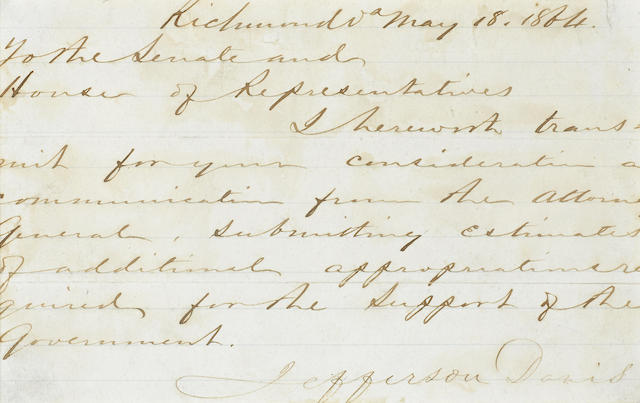 Richmond Va May 18. 1864.
To the Senate and
House of Representatives
I herewith trans=
mit for your consideration a
communication from the Attorne
General, submitting estimates
of additional appropriations re
quired for the support of the
Government.
Jefferson Davis